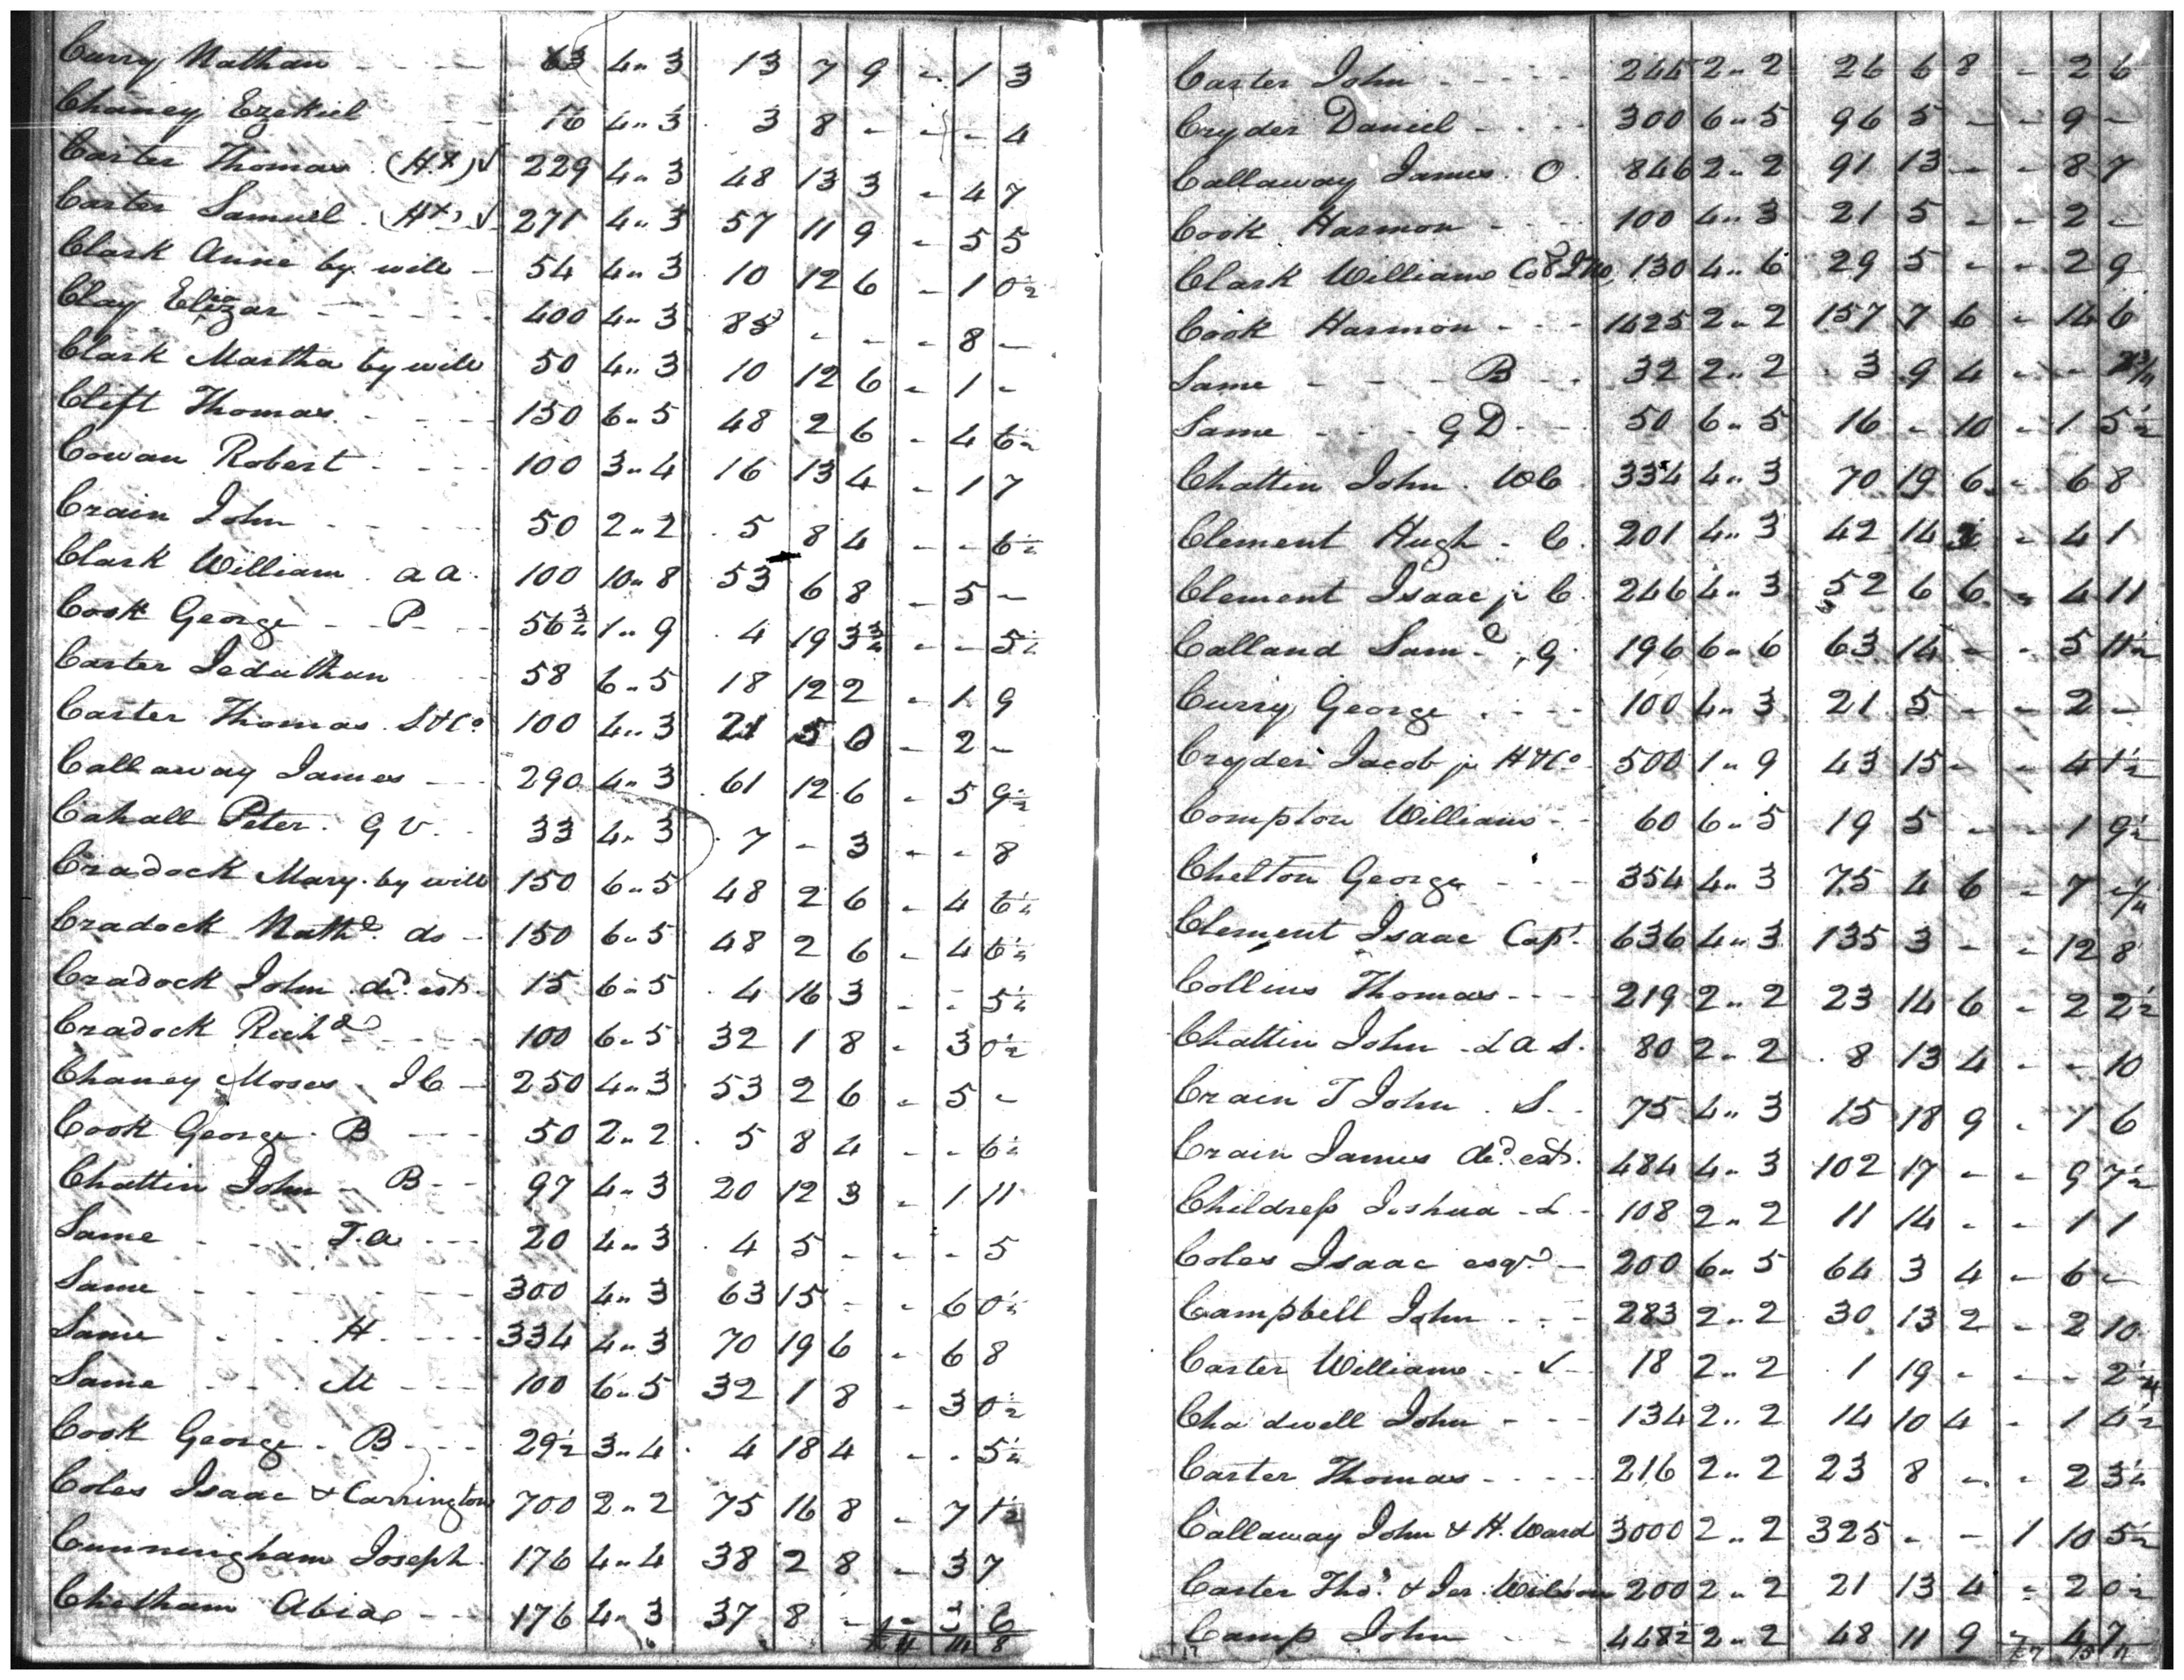 Curry Nathan - - - - 63 4 " 3 13 7 9 - 1 3
Chaney Ezekiel - - 16 4 " 3 3 8 - - - 4
Carter Thomas (HX) √ 229 4 " 3 48 13 3 - 4 7
Carter Samuel (HX) √ 271 4 " 3 57 11 9 - 5 5
Clark Anne by will - 54 4 " 3 10 12 6 - 1 0½
Clay - - - - 400 4 " 3 85 - - - 8 -
Clark Martha by will 50 4 " 3 10 12 6 - 1 -
Clift Thomas - - - 150 6 " 5 48 2 6 - 4 6½
Cowan Robert - - - 100 3 " 4 16 13 4 - 1 7
Crain John - - - - 50 2 " 2 5 8 4 - - 6½
Clark William a a 100 10 " 8 53 6 8 - 5 -
Cook George - - P - - 56¾ 1 " 9 4 19 3¾ - - 5½
Carter Jeduthan - - 58 6 " 5 18 12 2 - 1 9
Carter Thomas S & Co 100 4 " 3 21 5 0 - 2 -
Callaway James - - 290 4 " 3 61 12 6 - 5 9½
Cahall Peter G V 33 4 " 3 7 - 3 - - 8
Cradock Mary by will 150 6 " 5 48 2 6 - 4 6½
Cradock Nathl do - 150 6 " 5 48 2 6 - 4 6½
Cradock John dd est 15 6 " 5 4 16 3 - - 5½
Cradock Richd - - - 100 6 " 5 32 1 8 - 3 0½
Chaney Moses J C - 250 4 " 3 53 2 6 - 5 -
Cook George B - - - 50 2 " 2 5 8 4 - - 6½
Chattin John - B - - 97 4 " 3 20 12 3 - 1 11
Same - - - T.a - - - 20 4 " 3 4 5 - - - 5
Same - - - - - - 300 4 " 3 63 15 - - 6 0½
Same - - - H - - - 334 4 " 3 70 19 6 - 6 8
Same - - - M - - - 100 6 " 5 32 1 8 - 3 0½
Cook George - B - - - 29½ 3 " 4 4 18 4 - - 5½
Coles Isaac & Carrington 700 2 " 2 75 16 8 - 7 1½
Cunningham Joseph 176 4 " 4 38 2 8 - 3 7
Chetham - - 176 4 " 3 37 8 - - 3 6
Carter John - - - - 245 2 " 2 26 6 8 - 2 6
Cryder Daniel - - - 300 6 " 5 96 5 - - 9 -
Callaway James O 846 2 " 2 91 13 - - 8 7
Cook Harmon - - - 100 4 " 3 21 5 - - 2 -
Clark William 130 4 " 6 29 5 - - 2 9
Cook Harmon - - - 1425 2 " 2 157 7 6 - 14 6
Same - - - B - - 32 2 " 2 3 9 4 - -
Same - - - G D - - 50 6 " 5 16 - 10 - 1 5½
Chattin John W C 334 4 " 3 70 19 6 - 6 8
Clement Hugh - C 201 4 " 3 42 14 3 - 4 1
Clement Isaac jr C 246 4 " 3 52 6 6 - 4 11
Calland Saml G 196 6 " 6 63 14 - - 5 11½
Curry George - - - 100 4 " 3 21 5 - - 2 -
Cryder Jacob jr H & Co 500 1 " 9 43 15 - - 4 1½
Compton William - - 60 6 " 5 19 5 - - 1 9½
Chelton George - - - 354 4 " 3 75 4 6 - 7
Clement Isaac Capt 636 4 " 3 135 3 - - 12 8
Collins Thomas - - - 219 2 " 2 23 14 6 - 2 2½
Chattin John L a S 80 2 " 2 8 13 4 - - 10
Crain T John S - - 75 4 " 3 15 18 9 - 1 6
Crain James dd est 484 4 " 3 102 17 - - 9 7½
Childress Joshua - L - 108 2 " 2 11 14 - - 1 1
Coles Isaac esqr - 200 6 " 5 64 3 4 - 6 -
Campbell John - - - 283 2 " 2 30 13 2 - 2 10
Carter William - - √ - 18 2 " 2 1 19 - - - 2¼
Chadwell John - - - 134 2 " 2 14 10 4 - 1 4½
Carter Thomas - - - - 216 2 " 2 23 8 - - 2 3½
Callaway John & H. Ward 3000 2 " 2 325 - - 1 10 5½
Carter Thos & Jer. Wilson 200 2 " 2 21 13 4 - 2 0½
Camp John - - - 448½ 2 " 2 48 11 9 - 4 7